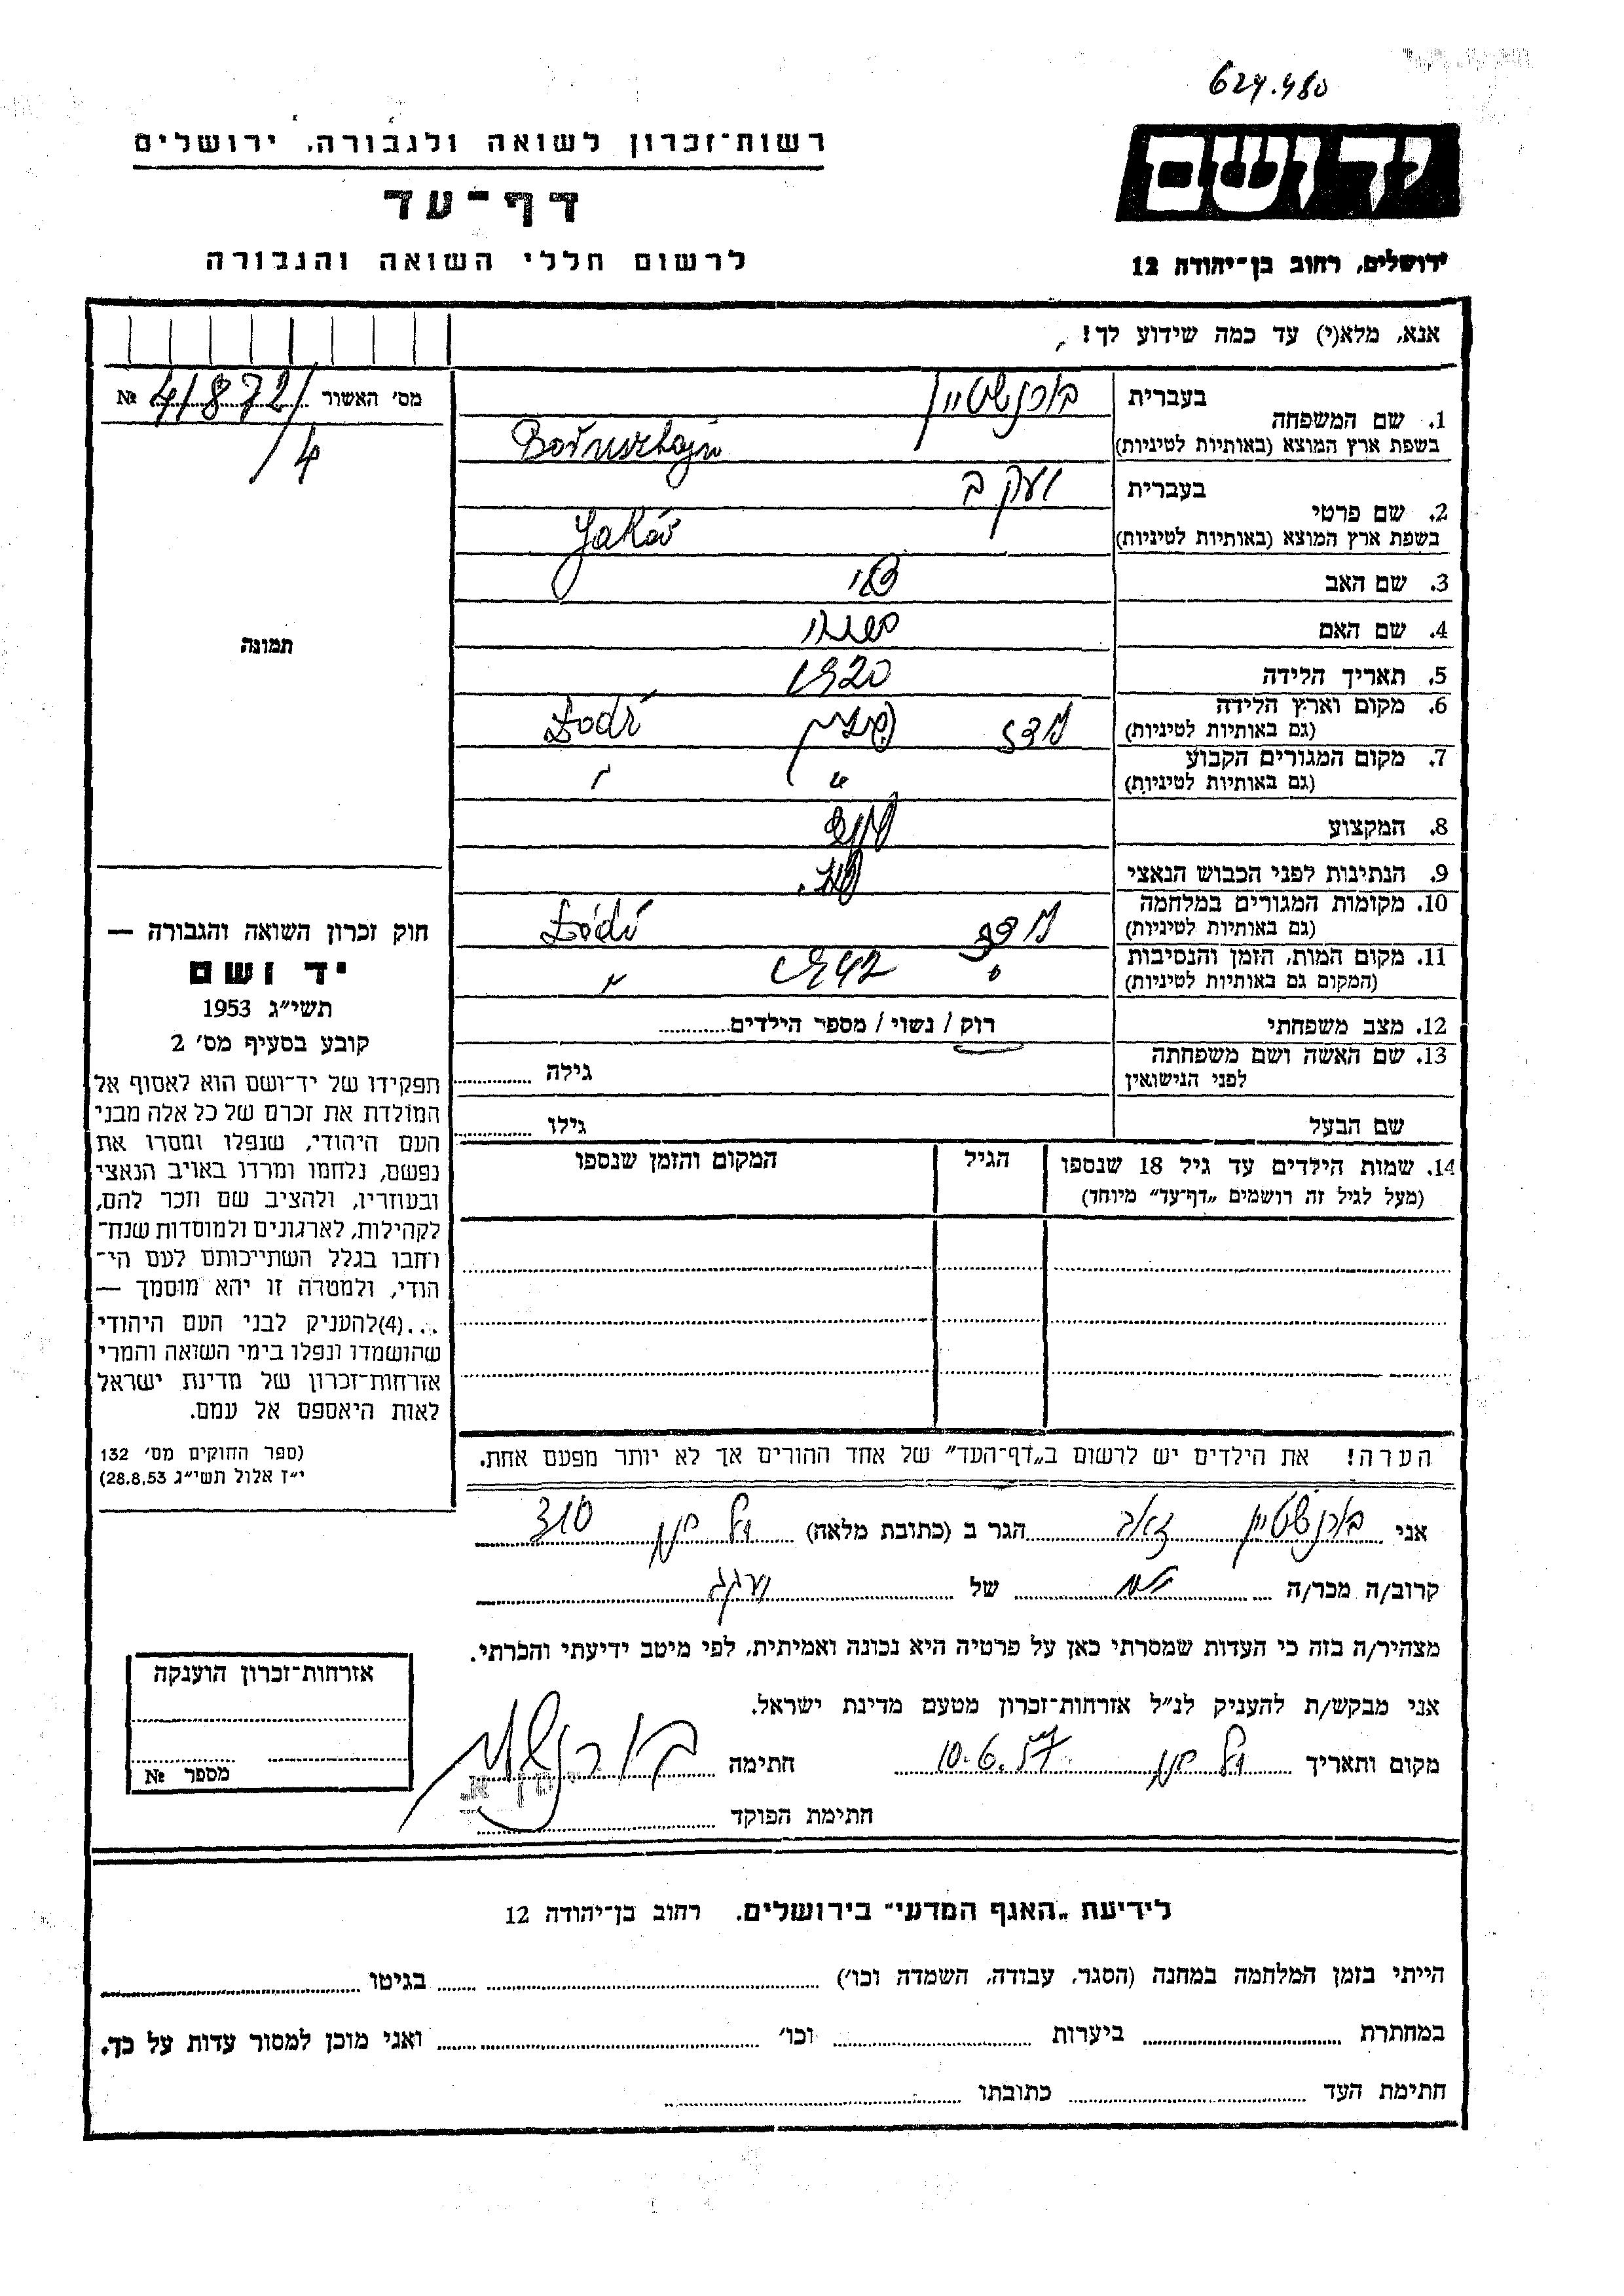 624.480
רשות־זכרון לשואה ולגבורה, ירושלים
יד ושם
דף־עד
לרשום חללי השואה והגבורה
ירושלים, רחוב בן־יהודה 12
אנא, מלא(י) עד כמה שידוע לך!
מס׳ האשור 41872/ №
/4
תמונה
1. שם המשפחה בעברית בורנשטיין
בשפת ארץ המוצא (באותיות לטיניות) Bornsztajn
2. שם פרטי בעברית יעקב
בשפת ארץ המוצא (באותיות לטיניות) Jakób
3. שם האב
4. שם האם
5. תאריך הלידה 1920
6. מקום וארץ הלידה לודז פולין Łodź
(גם באותיות לטיניות)
7. מקום המגורים הקבוע " "
(גם באותיות לטיניות)
8. המקצוע
9. הנתינות לפני הכבוש הנאצי פול.
10. מקומות המגורים במלחמה לודז Łódź
(גם באותיות לטיניות)
11. מקום המות, הזמן והנסיבות " 1942 "
(המקום גם באותיות לטיניות)
12. מצב משפחתי רוק / נשוי / מספר הילדים
13. שם האשה ושם משפחתה גילה
לפני הנישואין
שם הבעל גילו
14. שמות הילדים עד גיל 18 שנספו הגיל המקום והזמן שנספו
(מעל לגיל זה רושמים „דף־עד״ מיוחד)
חוק זכרון השואה והגבורה —
יד ושם
תשי״ג 1953
קובע בסעיף מס׳ 2
תפקידו של יד־ושם הוא לאסוף אל
המולדת את זכרם של כל אלה מבני
העם היהודי, שנפלו ומסרו את
נפשם, נלחמו ומרדו באויב הנאצי
ובעוזריו, ולהציב שם וזכר להם,
לקהילות, לארגונים ולמוסדות שנח־
רחבו בגלל השתייכותם לעם הי־
הודי, ולמטרה זו יהא מוסמך —
...(4)להעניק לבני העם היהודי
שהושמדו ונפלו בימי השואה והמרי
אזרחות־זכרון של מדינת ישראל
לאות היאספם אל עמם.
(ספר החוקים מס׳ 132
י״ז אלול תשי״ג 28.8.53)
הערה! את הילדים יש לרשום ב„דף־העד״ של אחד ההורים אך לא יותר מפעם אחת.
אני בורנשטיין זאב הגר ב (כתובת מלאה) 310
קרוב/ה מכר/ה של יעקב
מצהיר/ה בזה כי העדות שמסרתי כאן על פרטיה היא נכונה ואמיתית, לפי מיטב ידיעתי והכרתי.
אני מבקש/ת להעניק לנ״ל אזרחות־זכרון מטעם מדינת ישראל.
מקום ותאריך 10.6.57 חתימה
חתימת הפוקד
אזרחות־זכרון הוענקה
מספר №
לידיעת „האגף המדעי״ בירושלים. רחוב בן־יהודה 12
הייתי בזמן המלחמה במחנה (הסגר, עבודה, השמדה וכו׳) בגיטו
במחתרת ביערות וכו׳ ואני מוכן למסור עדות על כך.
חתימת העד כתובתו